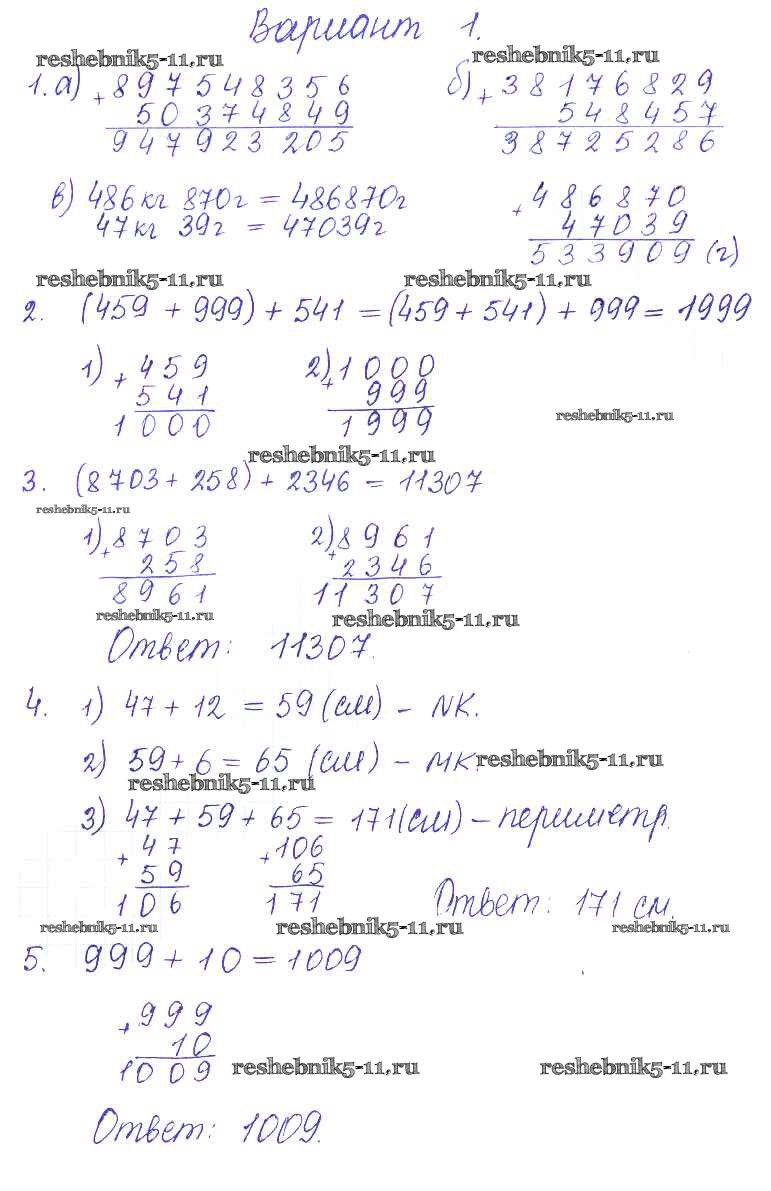 Вариант 1.
reshebnik5-11.ru reshebnik5-11.ru
1. а) + 897548356 б) + 38176829
50374849 548457
947923205 38725286
в) 486кг 870г = 486870г + 486870
47кг 39г = 47039г 47039
533909 (г)
reshebnik5-11.ru reshebnik5-11.ru
2. (459 + 999) + 541 = (459 + 541) + 999 = 1999
1) + 459 2) + 1000
541 999
1000 1999
reshebnik5-11.ru
reshebnik5-11.ru
3. (8703 + 258) + 2346 = 11307
reshebnik5-11.ru
1) + 8703 2) + 8961
258 2346
8961 11307
reshebnik5-11.ru reshebnik5-11.ru
Ответ: 11307.
4. 1) 47 + 12 = 59 (см) – NK.
2) 59 + 6 = 65 (см) – MK. reshebnik5-11.ru
reshebnik5-11.ru
3) 47 + 59 + 65 = 171 (см) – периметр.
+ 47 + 106
59 65
106 171 Ответ: 171 см.
reshebnik5-11.ru reshebnik5-11.ru reshebnik5-11.ru
5. 999 + 10 = 1009
+ 999
10
1009
reshebnik5-11.ru reshebnik5-11.ru
Ответ: 1009.